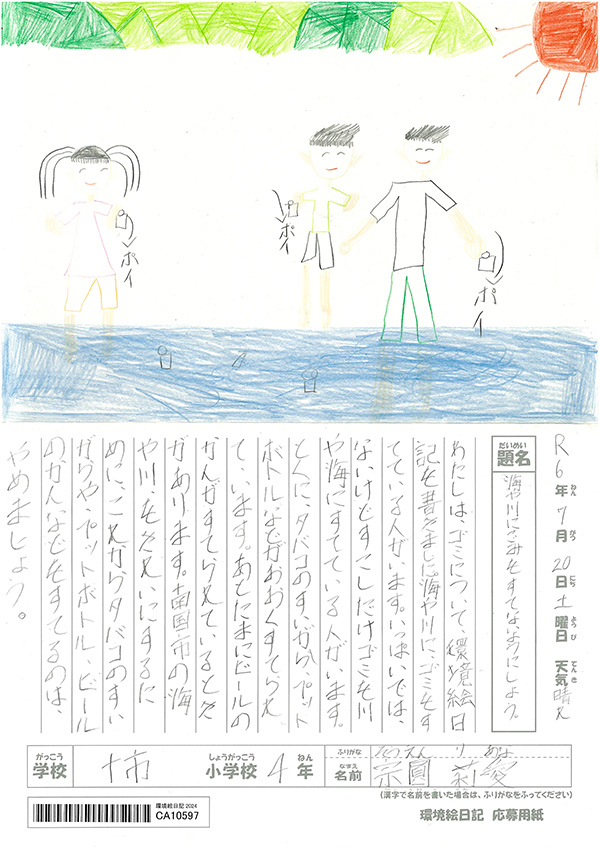 ポイ
ポイ
ポイ
R6年7月20日土曜日 天気晴れ
ねん がつ にち ようび てんき
だいめい
題名
海や川にごみをすてないようにしよう。
わたしは、ゴミについて、環境絵日
記を書きました。海や川に、ゴミをす
てている人がいます。いっぱいでは、
ないけどすこしだけゴミを川
や海にすてている人がいます。
とくに、タバコのすいがらや、ペット
ボトルなどがおおくすてられ
ています。あとたまにビールの
かんがすてられているときが
あります。南国市の海
や川、をきれいにするた
めに、これからタバコのすい
がらや、ペットボトル、ビール
のかん、などをすてるのは、
やめましょう。
がっこう
学校
しょうがっこう
小学校 4年
ねん
ふりがな
なまえ
名前
宗圓 莉愛
(漢字で名前を書いた場合は、ふりがなをふってください)
環境絵日記 2024
CA10597
環境絵日記 応募用紙